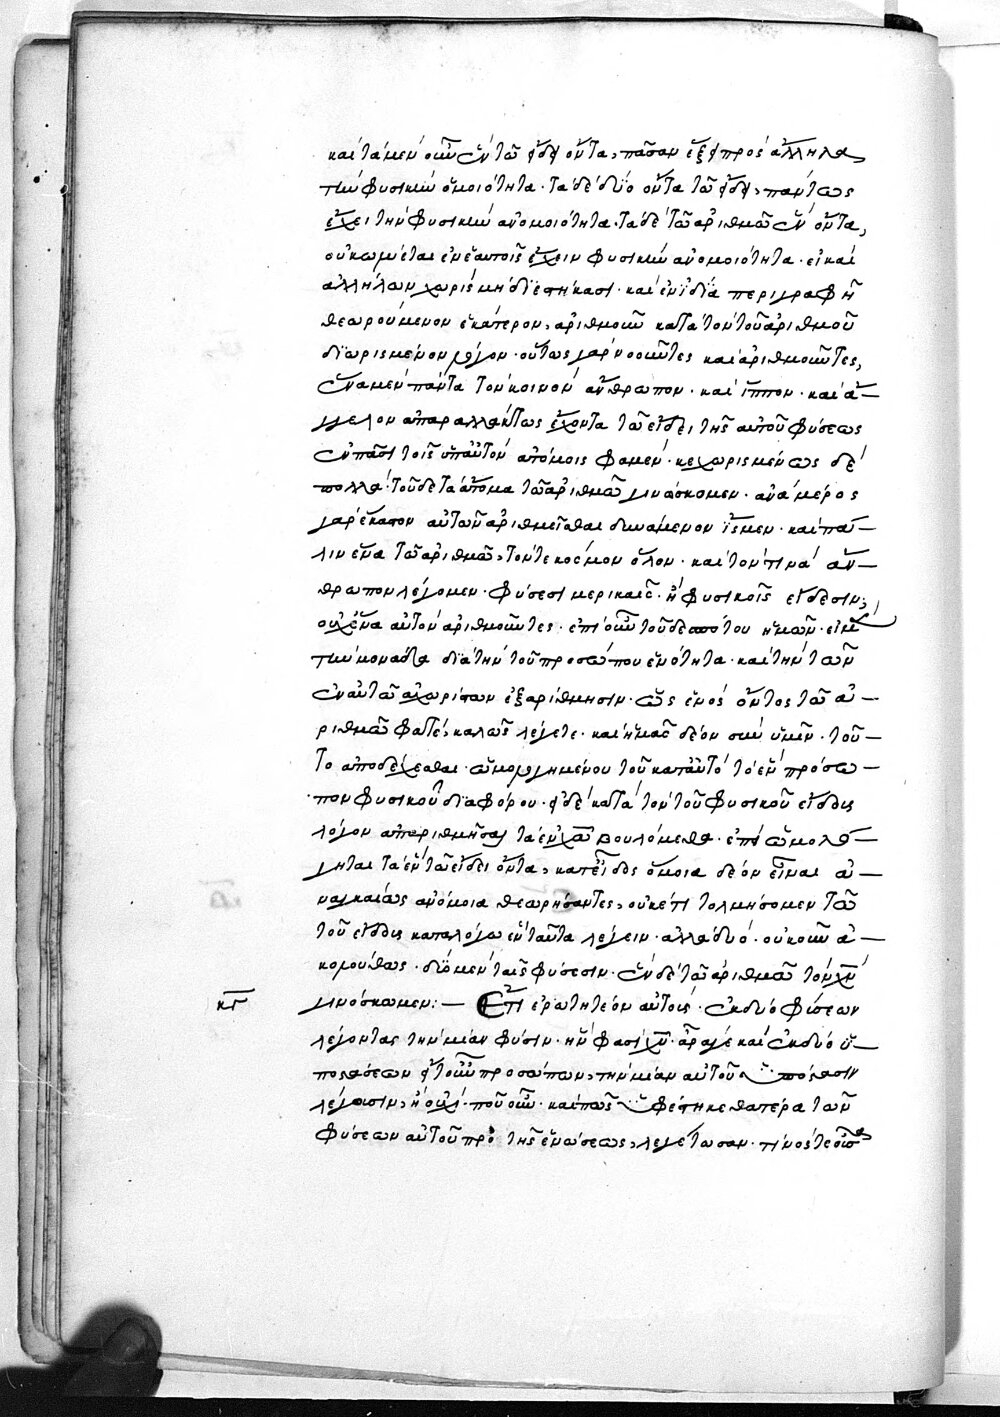 καὶ τὰ μὲν οὖν ἓν τῷ εἴδει ὄντα, πᾶσαν ἕξει πρὸς ἄλληλα
τὴν φυσικὴν ὁμοιότητα · τὰ δὲ δύο ὄντα τῷ εἴδει, πάντως
ἔχει τὴν φυσικὴν ἀνομοιότητα · τὰ δὲ τῷ ἀριθμῷ ἓν ὄντα,
ἔχειν φυσικὴν ἀνομοιότητα · εἰ καὶ
ἀλλήλων χωρὶς μὴ διέστήκασι · καὶ ἐν ἰδίᾳ περιγραφῇ
θεωρούμενον ἑκάτερον, ἀριθμοῦν κατὰ τὸν τοῦ ἀριθμοῦ
διωρισμένον λόγον · οὕτως γὰρ νοοῦντες καὶ ἀριθμοῦντες,
ἕνα μὲν πάντα τὸν κοινὸν ἄνθρωπον · καὶ ἵππον · καὶ ἄ—
γγελον ἀπαραλλάκτως ἔχοντα τῷ εἴδει τῆς αὐτοῦ φύσεως
ἐν πᾶσι τοῖς ὑπ' αὐτὸν ἀτόμοις φαμέν · κεχωρισμένως δὲ
πολλὰ τοῦδε τὰ ἄτομα τῷ ἀριθμῷ γινώσκομεν · ἀνὰ μέρος
γὰρ ἕκαστον αὐτῶν ἀριθμεῖσθαι δυνάμενον ἴσμεν · καὶ πά—
λιν ἕνα τῷ ἀριθμῷ, τόν τε κόσμον ὅλον · καὶ τόν τινα ἄν—
θρωπον λέγομεν · φύσεσι μερικαῖς · ἢ φυσικοῖς εἴδεσιν,
οὐχ ἕνα αὐτὸν ἀριθμοῦντες · ἐπὶ οὖν τοῦ δεσπότου ἡμῶν · εἰ μὲν
τὴν μονάδα διὰ τὴν τοῦ προσώπου ἑνότητα · καὶ τὴν τῶν
ἐν αὐτῷ ἀχωρίστων ἐξαρίθμησιν · ὡς ἑνὸς ὄντος τῷ ἀ—
ριθμῷ φατὲ, καλῶς λέγετε · καὶ ἡμᾶς δέον σὺν ὑμῖν · τοῦ—
το ἀποδέχεσθαι · ὡμολογημένου τοῦ κατ' αὐτὸ τὸ ἓν πρόσω—
πον φυσικοῦ διαφόρου · εἰ δὲ κατὰ τὸν τοῦ φυσικοῦ εἴδους
λόγον ἀπαριθμῆσαι τὰ ἐν χῶ βουλόμεθα · ἐπεὶ ὡμολό—
γηται τὰ ἓν τῷ εἴδει ὄντα, κατ' εἶδος ὅμοια δέον εἶναι ἀ—
ναγκαίως ἀνόμοια θεωρήσαντες, οὐκέτι τολμήσομεν τῷ
τοῦ εἴδους καταλόγῳ ἓν ταῦτα λέγειν · ἀλλὰ δύο · οὐκοῦν ἀ—
κολούθως · δύο μὲν ταῖς φύσεσιν · ἕνα δὲ τῷ ἀριθμῷ τὸν χν
κγ γινώσκωμεν :— Ἔτι ἐρωτητέον αὐτούς · ἐκ δύο φύσεων
λέγοντας τὴν μίαν φύσιν · ἥν φασι χν · ἆρά γε καὶ ἐκ δύο ὑ—
ποστάσεων εἴτουν προσώπων, τὴν μίαν αὐτοῦ ὑπόστασιν
λέγουσιν, ἢ οὐχί · ποῦ οὖν · καὶ πῶς ὑφέστηκε θατέρα τῶν
φύσεων αὐτοῦ πρὸ τῆς ἑνώσεως, λεγέτωσαν · τίνος τε